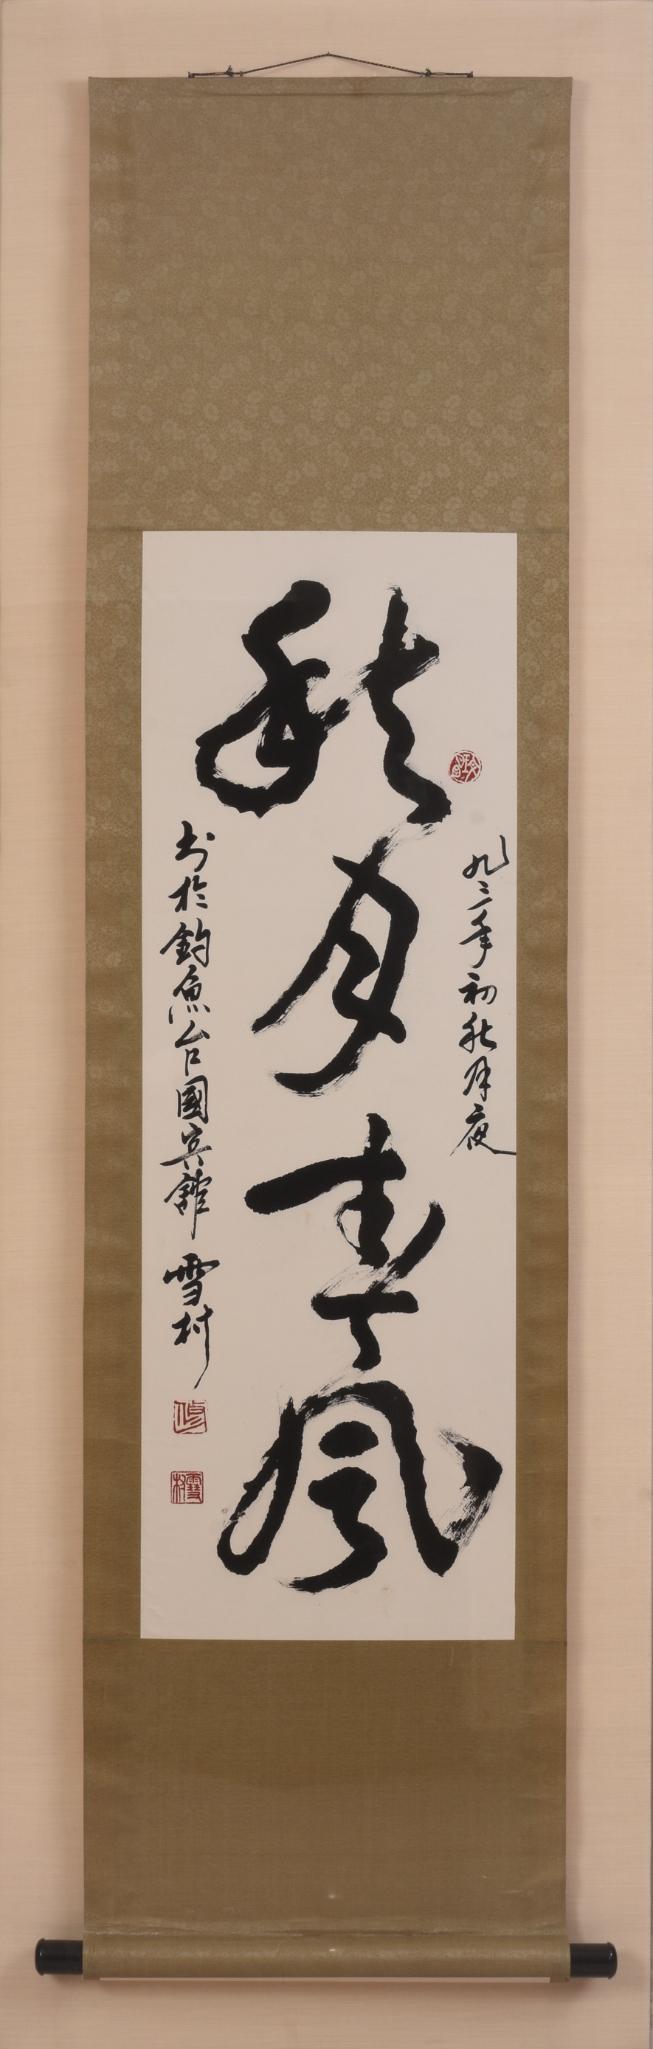 九三年初秋月夜
秋月春風
书於釣魚台國宾館
雪村
雪村